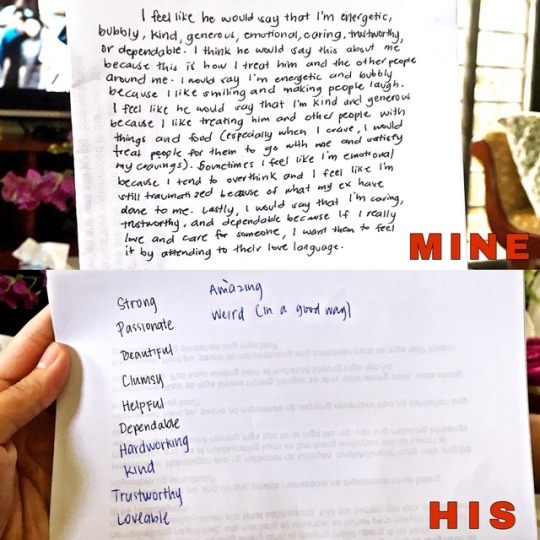 I feel like he would say that I'm energetic,
bubbly, kind, generous, emotional, caring, trustworthy,
or dependable. I think he would say this about me
because this is how I treat him and the other people
around me. I would say I'm energetic and bubbly
because I like smiling and making people laugh.
I feel like he would say that I'm kind and generous
because I like treating him and other people with
things and food (especially when I crave, I would
treat people for them to go with me and satisfy
my cravings). Sometimes I feel like I'm emotional
because I tend to overthink and I feel like I'm
still traumatized because of what my ex have
done to me. Lastly, I would say that I'm caring,
trustworthy, and dependable because if I really
love and care for someone, I want them to feel
it by attending to their love language.
MINE
Strong
Passionate
Beautiful
Clumsy
Helpful
Dependable
Hardworking
Kind
Trustworthy
Loveable
Amazing
Weird (in a good way)
HIS